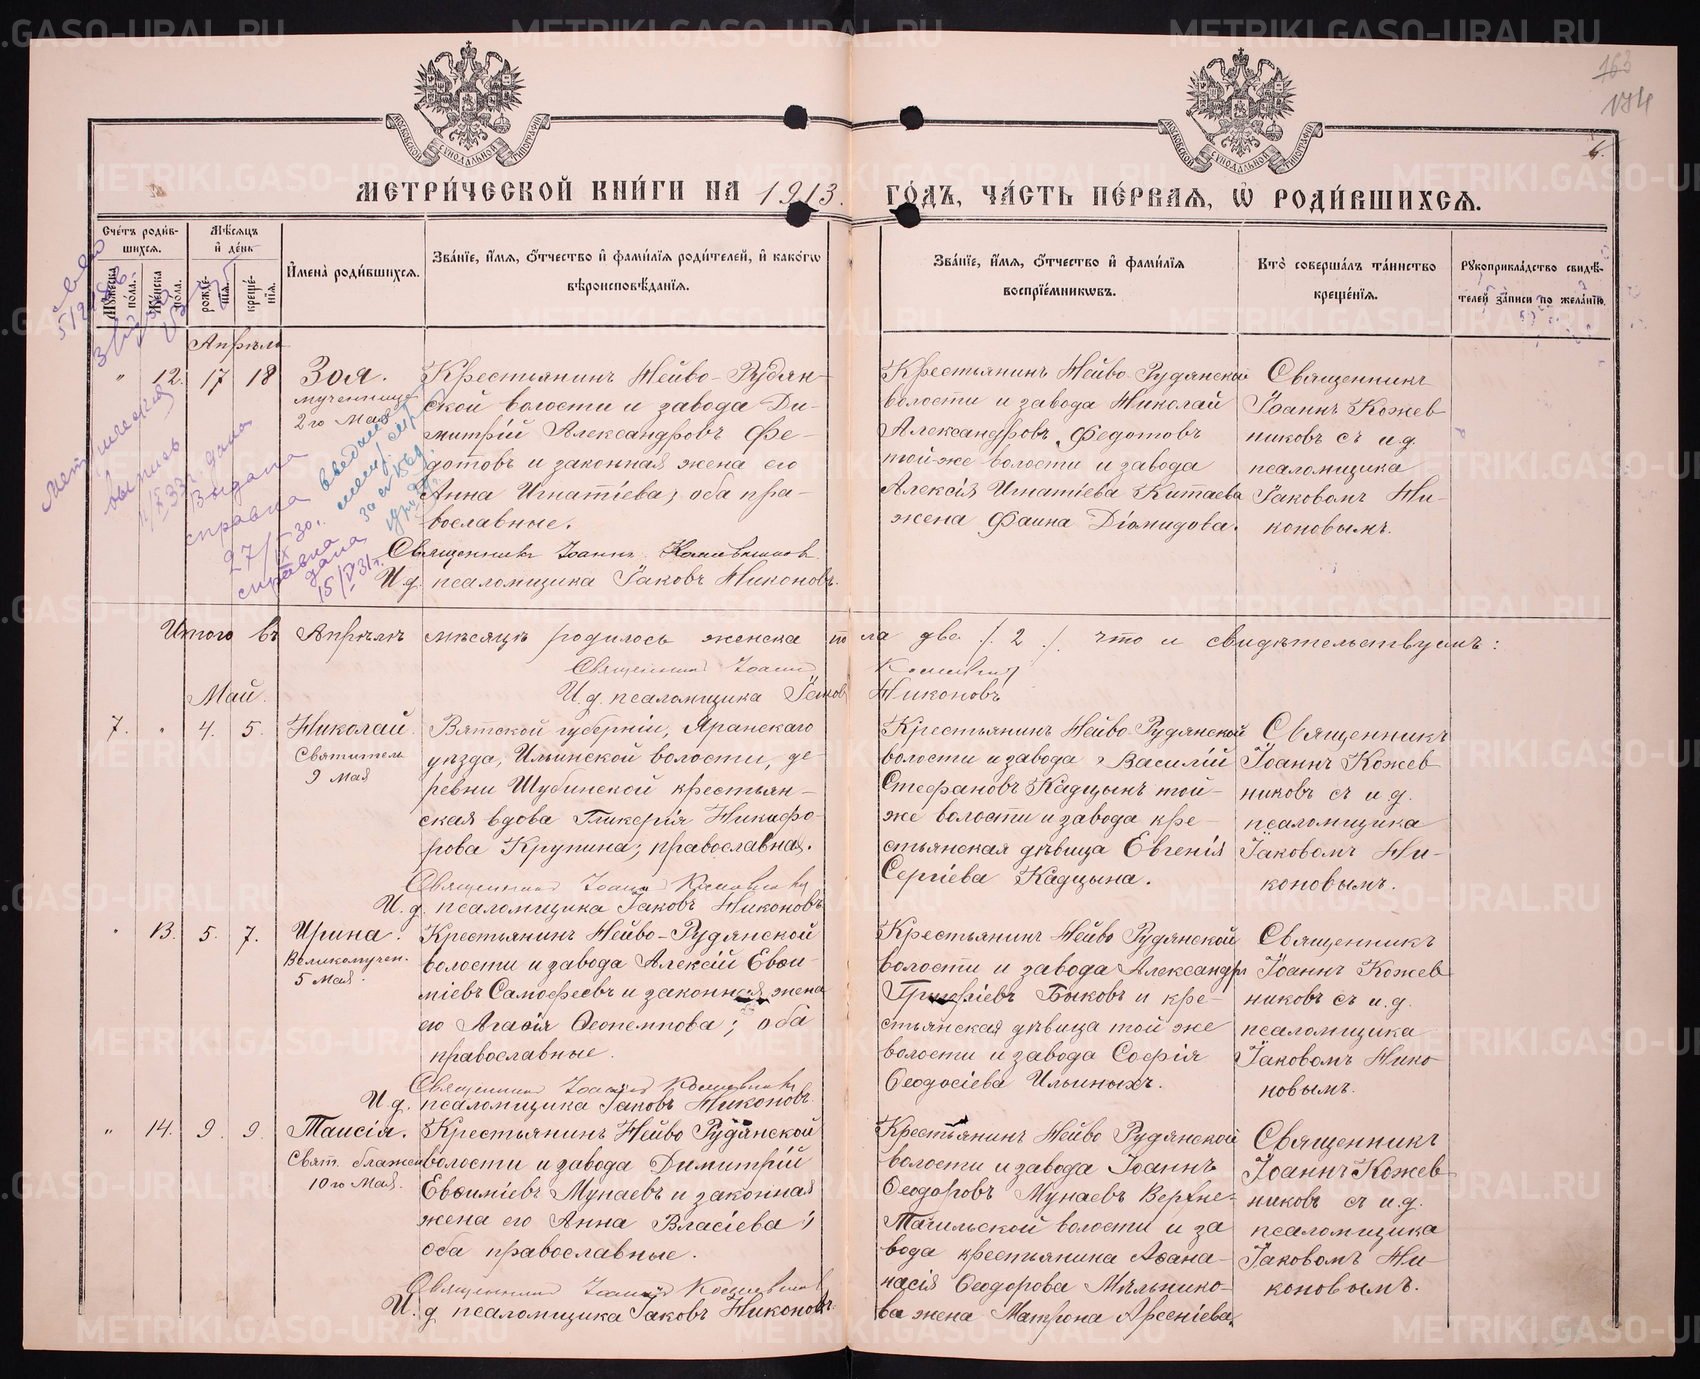 METRIKI.GASO-URAL.RU
163
174
МОСКОВСКОЙ СѴНОДАЛЬНОЙ ТИПОГРАФІИ
МОСКОВСКОЙ СѴНОДАЛЬНОЙ ТИПОГРАФІИ
МЕТРИ́ЧЕСКОЙ КНИ́ГИ НА 1913.
ГО́ДЪ, ЧА́СТЬ ПЕ́РВАѦ, Ѡ҆ РОДИ́ВШИХСѦ.
Сче́тъ роди́вшихсѧ.
Мѣ́сѧцъ и҆ де́нь
И҆мена̀ роди́вшихсѧ.
Зва́нїе, и҆́мѧ, ѻ҆́тчество и҆ фами́лїѧ роди́телей, и҆ како́гѡ вѣроисповѣ́данїѧ.
Зва́нїе, и҆́мѧ, ѻ҆́тчество и҆ фами́лїѧ воспрїе́мникѡвъ.
Кто̀ соверша́лъ та́инство креще́нїѧ.
Рꙋкоприкла́дство свидѣ́телей за́писи по жела́нїю.
Мꙋ́жеска по́ла.
Же́нска по́ла.
рожде́нїѧ.
креще́нїѧ.
Апрѣль
" 12. 17 18 Зоя.
мученицы
2го Мая
Крестьянинъ Нейво-Рудян-
ской волости и завода Ди-
митрій Александровъ Фе-
дотовъ и законная жена его
Анна Игнатіева, оба пра-
вославные.
Священникъ Іоаннъ Кожевниковъ
И.д. псаломщика Іаковъ Никоновъ.
Крестьянинъ Нейво-Рудянской
волости и завода Николай
Александровъ Федотовъ
той-же волости и завода
Алексія Игнатіева Китаева
жена Фаина Діомидова.
Священникъ
Іоаннъ Кожев-
никовъ съ и.д.
псаломщика
Іаковомъ Ни-
коновымъ.
Метрическая
выпись
Выдана
справка
27/IX 30.
справка
дана
15/V 31г.
Итого въ Апрѣлѣ мѣсяцѣ родилось женска пола два /2/. что и свидѣтельствуемъ:
Священникъ Іоаннъ Кожевниковъ
И.д. псаломщика Іаковъ Никоновъ
Май.
7. " 4. 5. Николай.
Святитель
9 Мая
Вятской губерніи, Яранскаго
уѣзда, Ильинской волости, де-
ревни Шубинской крестьян-
ская вдова Гликерія Никифо-
рова Крупина; православная.
Священникъ Іоаннъ Кожевниковъ
И.д. псаломщика Іаковъ Никоновъ
Крестьянинъ Нейво-Рудянской
волости и завода Василій
Стефановъ Кадцынъ той-
же волости и завода кре-
стьянская дѣвица Евгенія
Сергіева Кадцына.
Священникъ
Іоаннъ Кожев-
никовъ съ и.д.
псаломщика
Іаковомъ Ни-
коновымъ.
" 13. 5. 7. Ирина.
Великомучен.
5 Мая.
Крестьянинъ Нейво-Рудянской
волости и завода Алексій Евѳи-
міевъ Самофеевъ и законная жена
его Агаѳія Ѳеопемптова; оба
православные.
Священникъ Іоаннъ Кожевниковъ
И.д. псаломщика Іаковъ Никоновъ.
Крестьянинъ Нейво Рудянской
волости и завода Александръ
Григоріевъ Быковъ и кре-
стьянская дѣвица той же
волости и завода Софія
Ѳеодосіева Ильиныхъ.
Священникъ
Іоаннъ Кожев-
никовъ съ и.д.
псаломщика
Іаковомъ Нико-
новымъ.
" 14. 9. 9. Таисія.
Свят. блажен.
10го Мая.
Крестьянинъ Нейво Рудянской
волости и завода Димитрій
Евѳиміевъ Мунаевъ и законная
жена его Анна Власіева;
оба православные.
Священникъ Іоаннъ Кожевниковъ
И.д. псаломщика Іаковъ Никоновъ.
Крестьянинъ Нейво Рудянской
волости и завода Іоаннъ
Ѳеодоровъ Мунаевъ Верхне-
Тагильской волости и за
вода крестьянина Аѳана-
насія Ѳеодорова Мѣльнико-
ва жена Матрона Арсеніева.
Священникъ
Іоаннъ Кожев-
никовъ съ и.д.
псаломщика
Іаковомъ Ни-
коновымъ.